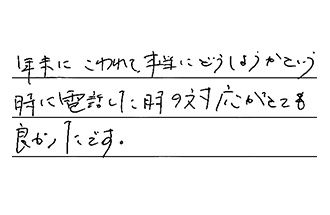 年末に こわれて本当にどうしようかという
時に電話した时の対応がとても
良かったです。